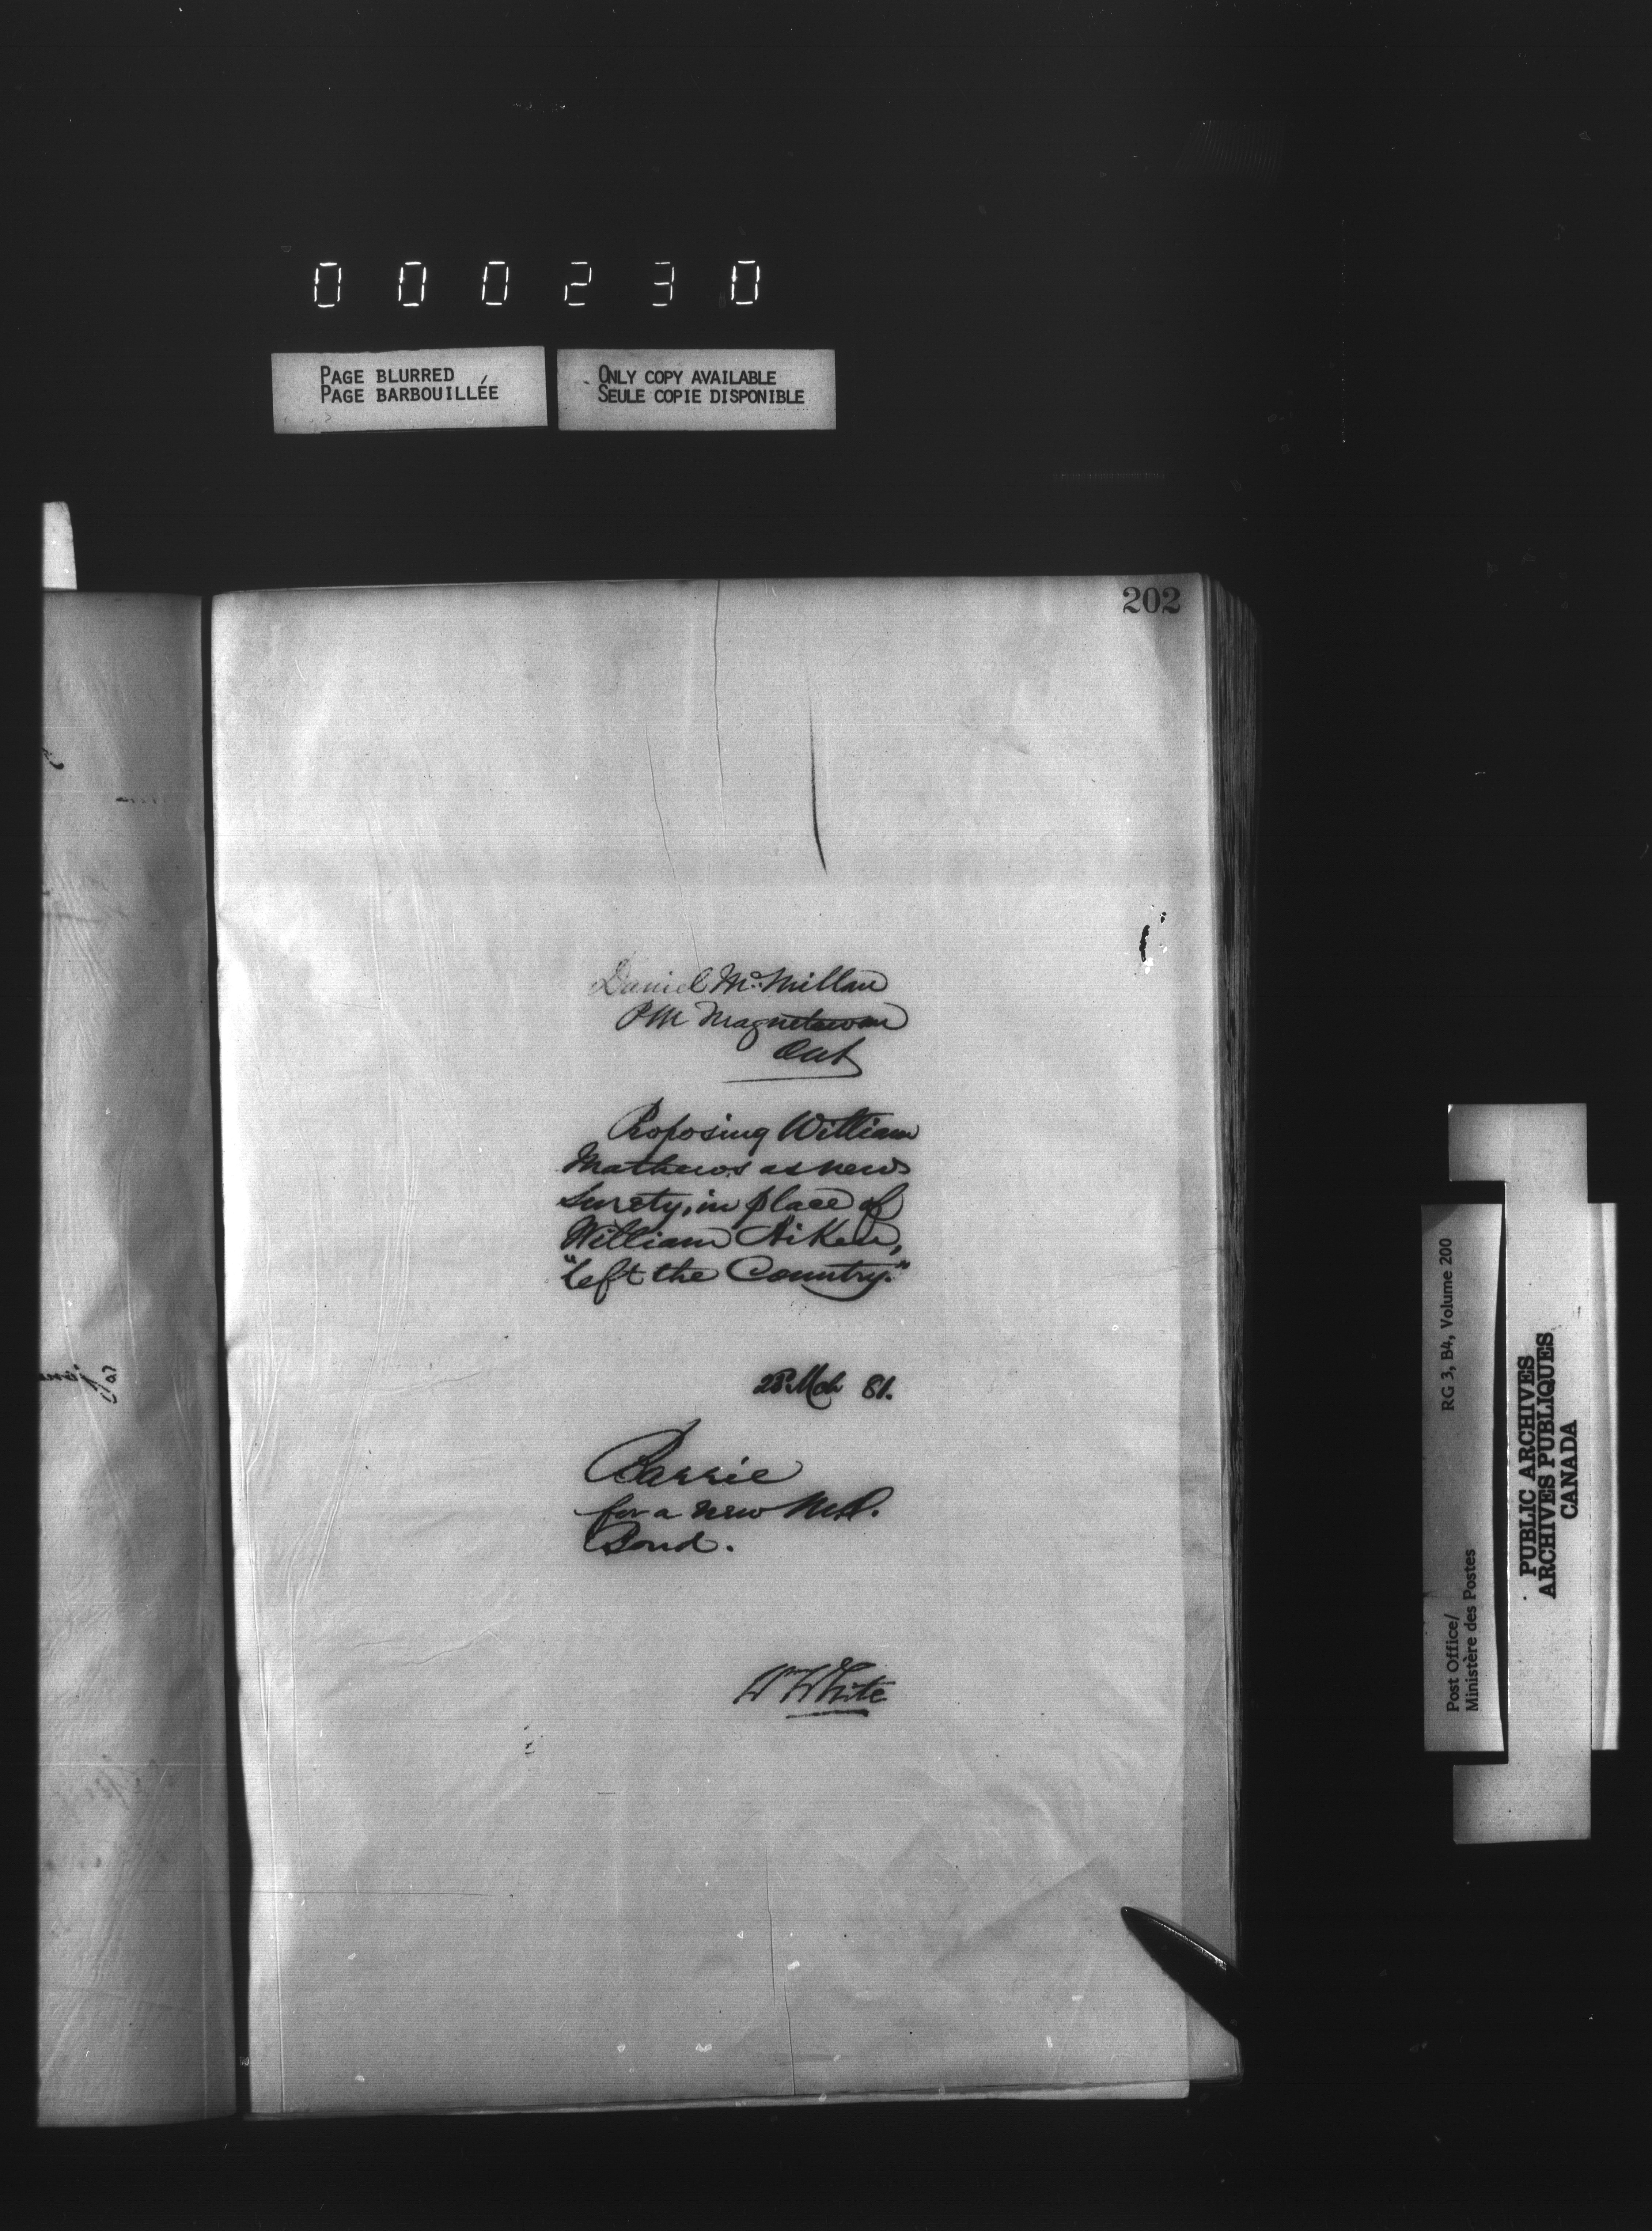 000230
PAGE BLURRED
PAGE BARBOUILLÉE
ONLY COPY AVAILABLE
SEULE COPIE DISPONIBLE
202
Daniel McMillan
PM Magnetawan
Ont
Proposing William
Mathews as new
surety, in place of
William Aiken,
"left the Country."
28 Mch 81.
Barrie
for a new M.O.
Bond.
Wm White
Post Office/
Ministère des Postes
RG 3, B4, Volume 200
PUBLIC ARCHIVES
ARCHIVES PUBLIQUES
CANADA